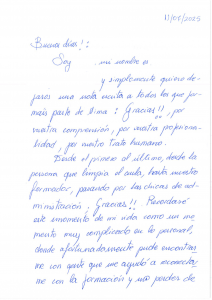 11/05/2025
Buenos días!:
Soy mi nombre es
y simplemente quiero de-
jaros una nota escrita a todos los que for-
máis parte de : Gracias!! , por
vuestra comprensión, por vuestra profesiona-
lidad, por vuestro trato humano.
Desde el primero al último, desde la
persona que limpia el aula, hasta nuestro
formador, pasando por las chicas de ad-
ministración: Gracias!! Recordaré
este momento de mi vida como un mo-
mento muy complicado en lo personal,
donde afortunadamente pude encontrar
me con gente que me ayudó a reconectar
me con la formación y